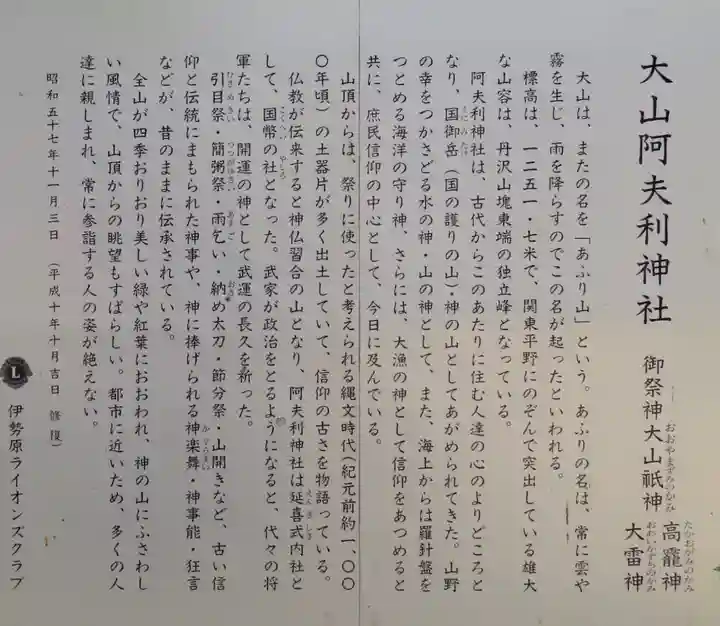 大山阿夫利神社
御祭神大山祇神
おおやまずみのかみ
高龗神
たかおがみのかみ
大雷神
おおいかずちのかみ
大山は、またの名を「あふり山」という。あふりの名は、常に雲や
霧を生じ、雨を降らすのでこの名が起ったといわれる。
標高は、一二五一・七米で、関東平野にのぞんで突出している雄大
な山容は、丹沢山塊東端の独立峰となっている。
阿夫利神社は、古代からこのあたりに住む人達の心のよりどころと
なり、国御岳(国の護りの山)・神の山としてあがめられてきた。山野
くにみたけ
の幸をつかさどる水の神・山の神として、また、海上からは羅針盤を
つとめる海洋の守り神、さらには、大漁の神として信仰をあつめると
共に、庶民信仰の中心として、今日に及んでいる。
山頂からは、祭りに使ったと考えられる縄文時代(紀元前約一、〇〇
〇年頃)の土器片が多く出土していて、信仰の古さを物語っている。
仏教が伝来すると神仏習合の山となり、阿夫利神社は延喜式内社と
えんぎしき
して、国幣の社となった。武家が政治をとるようになると、代々の将
こくへい やしろ
軍たちは、開運の神として武運の長久を祈った。
引目祭・筒粥祭・雨乞い・納め太刀・節分祭・山開きなど、古い信
ひきめさい つつがゆさい あまごい おさめ
仰と伝統にまもられた神事や、神に捧げられる神楽舞・神事能・狂言
かぐらまい
などが、昔のままに伝承されている。
全山が四季おりおり美しい緑や紅葉におおわれ、神の山にふさわし
い風情で、山頂からの眺望もすばらしい。都市に近いため、多くの人
達に親しまれ、常に参詣する人の姿が絶えない。
昭和五十七年十一月三日 (平成十年十月吉日 修復)
L 伊勢原ライオンズクラブ